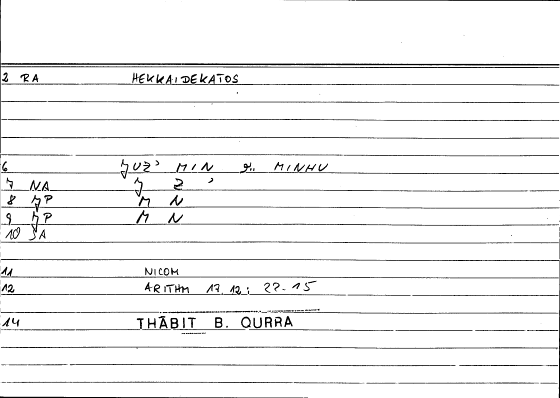 2 RA HEKKAIDEKATOS
6 ǦUZʾ MIN MINHU
7 NA Ǧ Z ʾ
8 ǦP M N
9 ǦP M N
10 SA
11 NICOM
12 ARITHM 17, 12; 22-15
14 THĀBIT B. QURRA